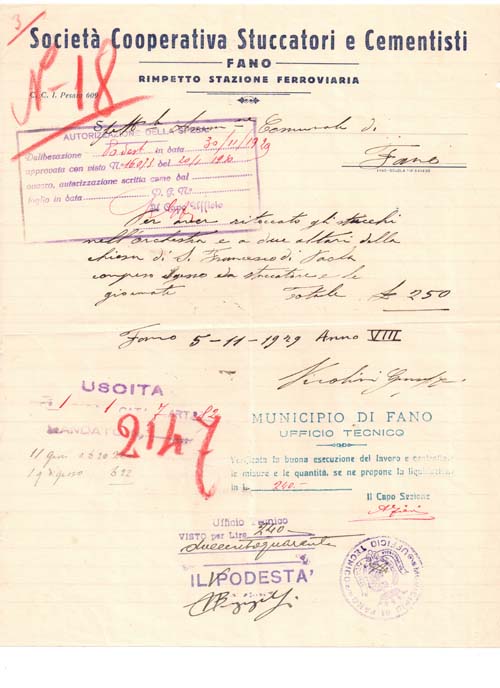 3
Società Cooperativa Stuccatori e Cementisti
FANO
RIMPETTO STAZIONE FERROVIARIA
C. C. I. Pesaro 609
N-18
Comunale di
Fano
AUTORIZZAZIONE DELLA SPESA
Deliberazione Podest. in data 30/11/1929
approvata con visto N°
onesto, autorizzazione scritta come dal
foglio in data P. G. N°
Il Capo Ufficio
Per aver ritoccato gli stucchi
nell'orchestra e a due altari della
chiesa di S. Francesco di Paola
compreso gesso da stuccatore e le
giornate Totale £ 250
Fano 5-11-1929 Anno VIII
USCITA
MANDATO
2147
MUNICIPIO DI FANO
UFFICIO TECNICO
Verificata la buona esecuzione del lavoro e controllate
le misure e le quantità, se ne propone la liquidazione
in L. 240.-
Il Capo Sezione
Ufficio Tecnico
VISTO per Lire 240-
duecentoquaranta
IL PODESTA'
MUNICIPIO DI FANO UFFICIO TECNICO